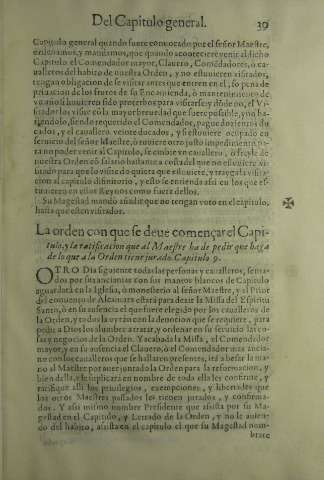 Del Capitulo general. 39
Capitulo general quando fuere convocado por el señor Maestre,
ordenamos, y mandamos, que quando aconteciere venir al dicho
Capitulo el Comendador mayor, Clavero, Comẽdadores, ò ca-
valleros del habito de nuestra Orden, y no estuvieren visitados,
tengan obligacion de se visitar antes que entren en el, so pena de
privacion de los frutos de su Encomienda, ò mantenimiento de
vn año si huvieren sido proterbos para visitarse; y dõde no, el Vi-
sitador los visite cõ la mayor brevedad que fuere possible, y no ha-
ziendolo, siendo requerido el Comendador, pague dozientos du-
cados, y el cavallero veinte ducados, y si estuviere ocupado en
servicio del señor Maestre, ò tuviere otro justo impedimento pa-
ra no poder venir al Capitulo, se embie vn cavallero, ò freyle de
nuestra Orden cõ salario bastante a costa del que no estuviere vi-
sitado para que lo visite do quiera que estuviere, y traygala visita-
cion al capitulo difinitorio, y esto se entienda assi en los que es-
tuvieren en estos Reynos como fuera dellos.
Su Magestad mandò añadir que no tengan voto en el capitulo,
hasta que esten visitados.
La orden con que se deve començar el Capi-
tulo, y la ratificacion que al Maestre ha de pedir que haga
de lo que a la Orden tiene jurado. Capitulo 9.
OTRO Dia siguiente todas las personas y cavalleros, senta-
dos por sus ancianias con sus mantos blancos de Capitulo
aguardarà en la Iglesia, ò monesterio al señor Maestre, y al Prior
del convento de Alcantara estarà para dezir la Missa del Espiritu
Santo, ò en su ausencia el que fuere elegido por los cavalleros de
la Orden, y todos la oyràn con la devocion que se requiere, para
pedir a Dios los alumbre a tratar, y ordenar en su servicio las co-
sas y negocios de la Orden. Y acabada la Missa, el Comendador
mayor, y en su ausencia el Clavero, ò el Comendador mas ancia-
no con los cavalleros que se hallaren presentes, irà a besar la ma-
no al Maestre por aver juntado la Orden para la reformacion, y
bien della, e le suplicara en nombre de toda ella les confirme, y
ratifique assi los privilegios, exempciones, y libertades que
los otros Maestres passados les tienen jurados, y confirma-
dos. Y assi mismo nombre Presidente que assista por su Ma-
gestad en el Capitulo, y Letrado de la Orden, y no le avien-
do del habito, assista en el capitulo el que su Magestad nom-
brare